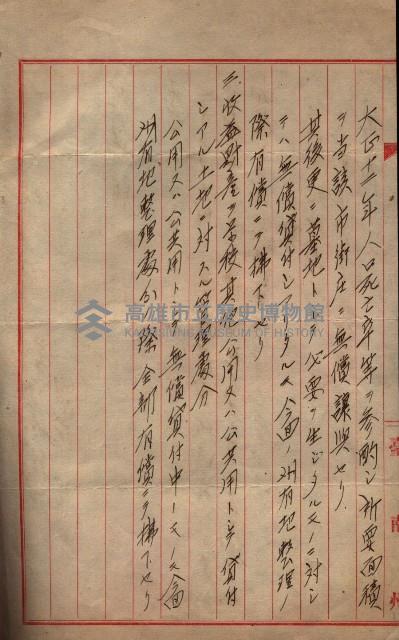 大正十一年人口死亡率等ヲ参酌シ所要面積
ヲ当該市街庄ニ無償譲與セリ
其後更ニ墓地トシテ必要ヲ生ジタルモノニ対シ
テハ無償貸付シアリタルモ今回ノ州有地整理ノ
際有償ニテ拂下セリ
三、收益財産ヲ学校其他公用又ハ公共用トシテ貸付
シアル土地ニ対スル管理處分
公用又ハ公共用トシテ無償貸付中ノモノモ今回
州有地整理處分ノ際全部有償ニテ拂下セリ
臺南州
高雄市立歷史博物館
KAOHSIUNG MUSEUM OF HISTORY